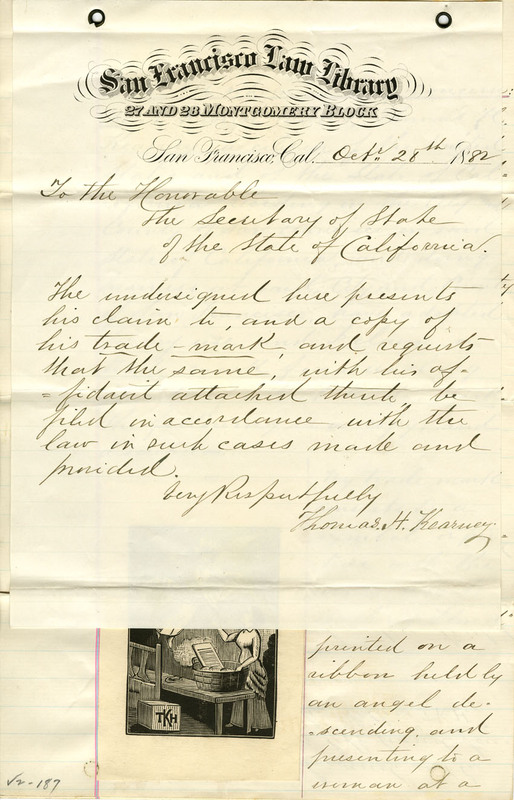 San Francisco Law Library
27 AND 28 MONTGOMERY BLOCK
San Francisco, Cal. Octr. 28th 1882
To the Honorable
the Secretary of State
of the State of California.
The undersigned here presents
his claim to, and a copy of
his trade-mark, and requests
that the same, with his af-
=fidavit attached thereto be
filed in accordance with the
law in such cases made and
provided.
Very Respectfully
Thomas. H. Kearney.
TKH
printed on a
ribbon held by
an angel de-
-scending, and
presenting to a
woman at a
V2-187